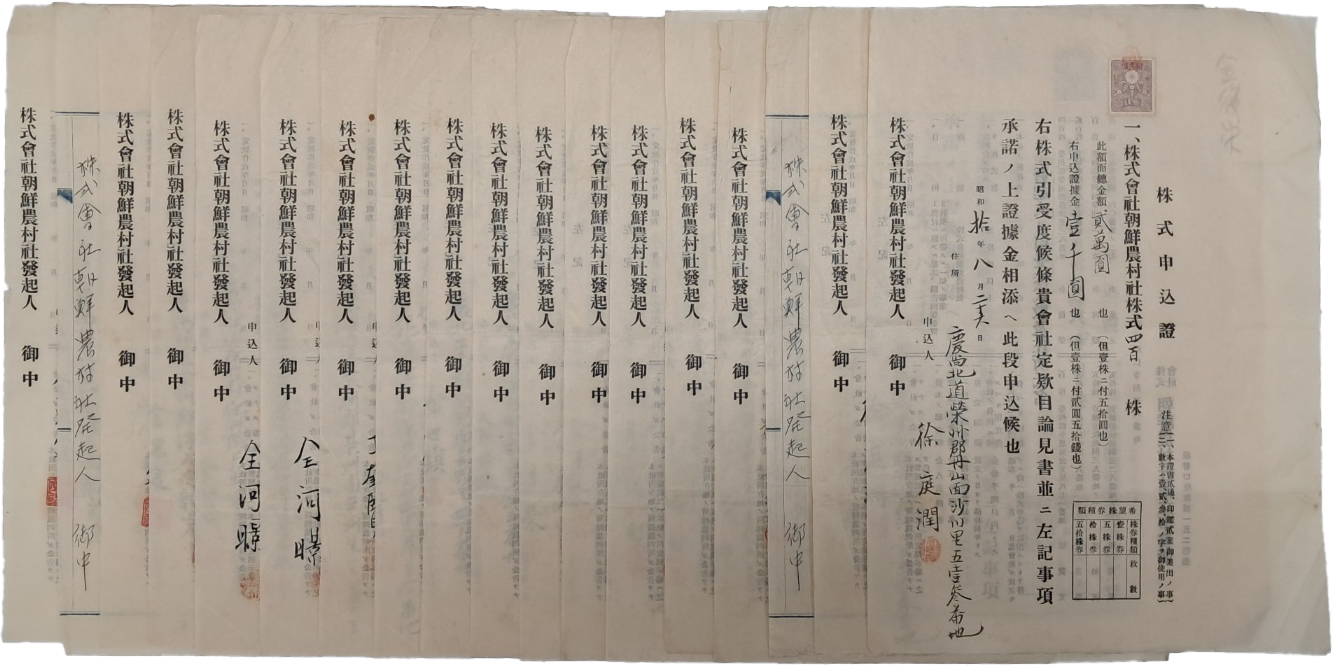 株式申込證
注意
一、株式會社朝鮮農村社株式四百株
此額面總金額貳萬圓也 (但壹株ニ付五拾圓也)
右申込證據金壹千圓也 (但壹株ニ付貳圓五拾錢也)
希望株券種類
株券種類 枚數
壹株券
五株券
拾株券
五拾株券
右株式引受度候條貴會社定欵目論見書並ニ左記事項
承諾ノ上證據金相添ヘ此段申込候也
昭和拾年八月 日
住所 慶尚北道榮州郡丹山面沙川里五壹參番地
申込人 徐庭潤
株式會社朝鮮農村社發起人 御中
株式會社朝鮮農村社發起人 御中
株式會社朝鮮農村社發起人 御中
株式會社朝鮮農村社發起人 御中
株式會社朝鮮農村社發起人 御中
株式會社朝鮮農村社發起人 御中
株式會社朝鮮農村社發起人 御中
株式會社朝鮮農村社發起人 御中
株式會社朝鮮農村社發起人 御中
株式會社朝鮮農村社發起人 御中
株式會社朝鮮農村社發起人 御中
申込人
株式會社朝鮮農村社發起人 御中
申込人 全河暻
株式會社朝鮮農村社發起人 御中
申込人 全河暻
株式會社朝鮮農村社發起人 御中
株式會社朝鮮農村社發起人 御中
株式會社朝鮮農村社發起人 御中
株式會社朝鮮農村社發起人 御中
株式會社朝鮮農村社發起人 御中